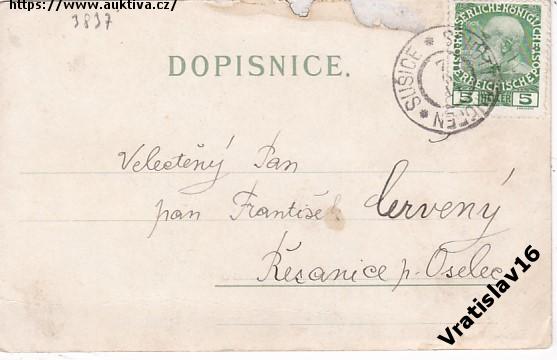 https://www.auktiva.cz/
3837
DOPISNICE.
* SUŠICE *
5 HELLER 5
Velectěný Pan
pan František Červený
Kesanice p. Oselec
Vratislav16